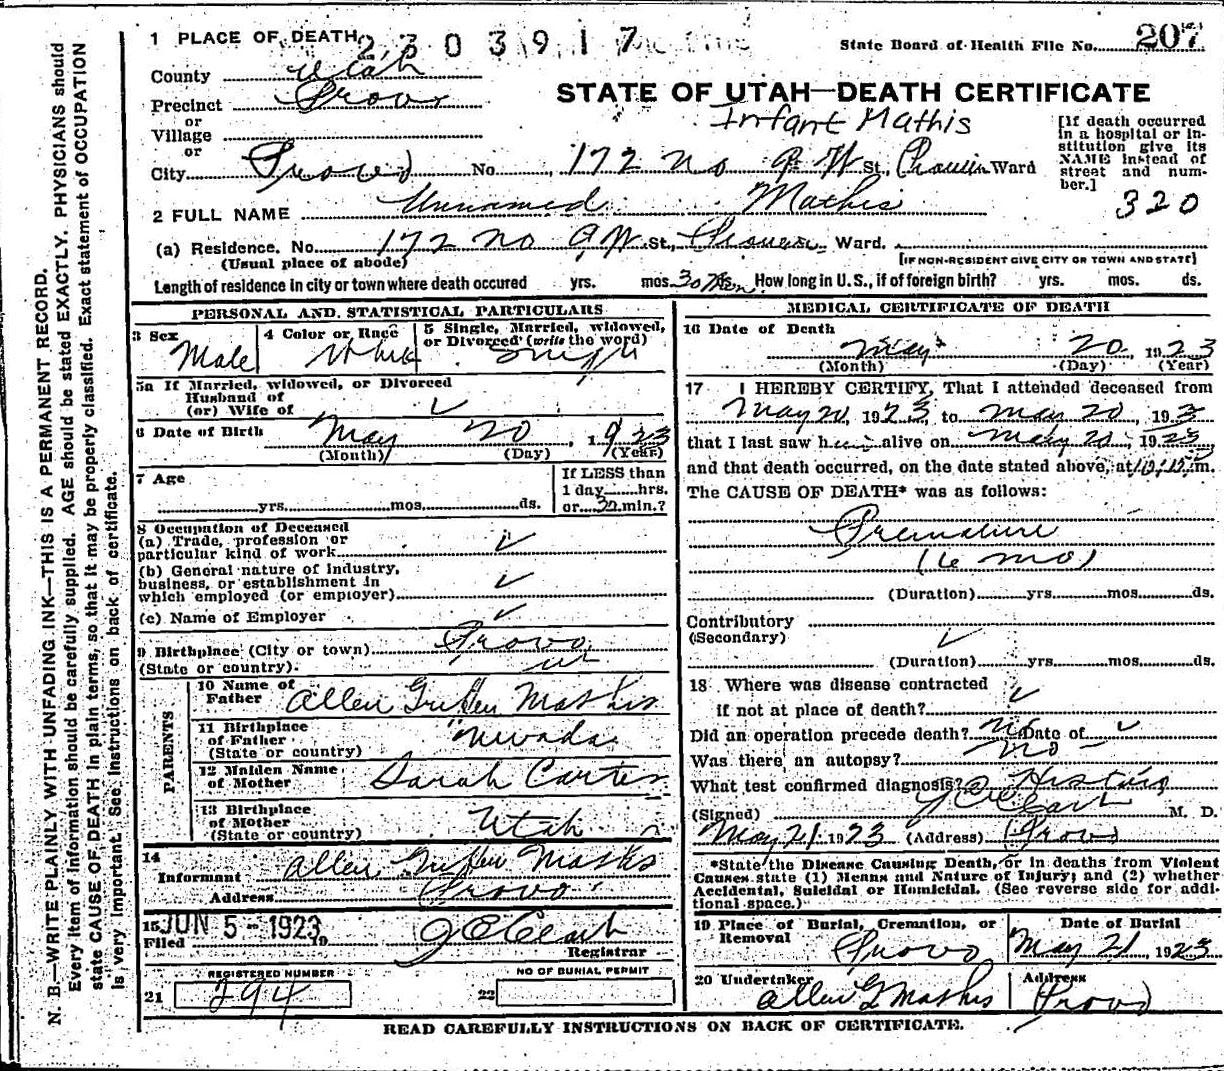 N. B.—WRITE PLAINLY WITH UNFADING INK—THIS IS A PERMANENT RECORD.
Every item of information should be carefully supplied. AGE should be stated EXACTLY. PHYSICIANS should
state CAUSE OF DEATH in plain terms, so that it may be properly classified. Exact statement of OCCUPATION
is very important. See instructions on back of certificate.
1 PLACE OF DEATH
2303917
State Board of Health File No. 207
County Utah
Precinct Provo
or
Village
or
City Provo No. 172 no 9 W St, Ward
STATE OF UTAH—DEATH CERTIFICATE
Infant Mathis
[If death occurred
in a hospital or in-
stitution give its
NAME instead of
street and num-
ber.]
320
2 FULL NAME Unnamed Mathis
(a) Residence. No. 172 no 9 W St., Ward.
(Usual place of abode)
[IF NON-RESIDENT GIVE CITY OR TOWN AND STATE]
Length of residence in city or town where death occured yrs. mos. 30 Min How long in U. S., if of foreign birth? yrs. mos. ds.
PERSONAL AND STATISTICAL PARTICULARS
3 Sex
Male
4 Color or Race
White
5 Single, Married, widowed,
or Divorced (write the word)
Single
5a If Married, widowed, or Divorced
Husband of
(or) Wife of
6 Date of Birth May 20, 1923
(Month) (Day) (Year)
7 Age
yrs. mos. ds.
If LESS than
1 day hrs.
or 30 min.?
8 Occupation of Deceased
(a) Trade, profession or
particular kind of work
(b) General nature of industry,
business, or establishment in
which employed (or employer)
(c) Name of Employer
9 Birthplace (City or town) Provo
(State or country). ut
PARENTS
10 Name of
Father Allen Griffen Mathis
11 Birthplace
of Father Nevada
(State or country)
12 Maiden Name
of Mother Sarah Carter
13 Birthplace
of Mother Utah
(State or country)
14
Informant Allen Griffen Mathis
Address Provo
15 JUN 5 - 1923
Filed 19
Registrar
REGISTERED NUMBER
21 294
NO OF BURIAL PERMIT
22
MEDICAL CERTIFICATE OF DEATH
16 Date of Death
May 20, 1923
(Month) (Day) (Year)
17 I HEREBY CERTIFY, That I attended deceased from
May 20, 1923, to May 20, 193
that I last saw h alive on May 20, 1923
and that death occurred, on the date stated above, at 10:15 m.
The CAUSE OF DEATH* was as follows:
Premature
(6 mo)
(Duration) yrs. mos. ds.
Contributory
(Secondary)
(Duration) yrs. mos. ds.
18 Where was disease contracted
if not at place of death?
Did an operation precede death? no Date of
Was there an autopsy? no
What test confirmed diagnosis? History
(Signed) M. D.
May 21 1923 (Address) Provo
*State the Disease Causing Death, or in deaths from Violent
Causes state (1) Means and Nature of Injury; and (2) whether
Accidental, Suicidal or Homicidal. (See reverse side for addi-
tional space.)
19 Place of Burial, Cremation, or
Removal
Provo
Date of Burial
May 21, 1923
20 Undertaker
Allen G Mathis
Address
Provo
READ CAREFULLY INSTRUCTIONS ON BACK OF CERTIFICATE.